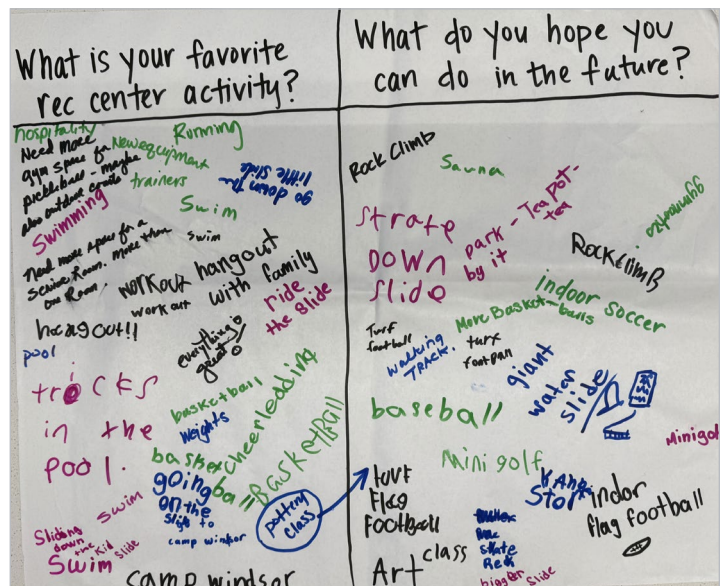 What is your favorite
rec center activity?
hospitality
Need more
gym space for
pickleball - maybe
also outdoor
New equipment
trainers
Running
go down the
little slide
Swimming
Swim
need more space for a
Room. More than
one Room.
swim
workout
work out
hangout
with family
ride
the slide
hangout!!
pool
everything is
great!
tricks
in the
pool.
basketball
weights
cheerleadding
basketball
BasketBall
going
on the
slip to
camp windsor
pottery
class
swim
Sliding
down
the
Kid
slide
Swim
camp windsor
What do you hope you
can do in the future?
Rock Climb
Sauna
Strate
DOWN
Slide
park - Teapot-
by it
tea
gymnastics
RockclimB
indoor soccer
More Basket-balls
Turf
football
walking
TRACK.
turf
giant
water
slide
baseball
Mini golf
Minigol
turf
Flag
FOOTBALL
indor
flag football
skate
Art class
bigger slide